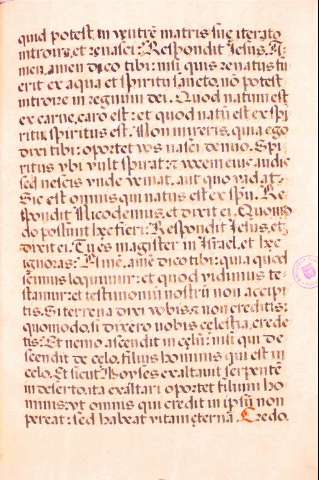 quid potest, in ventrē matris suę iterato
introire, et renasci? Respondit Iesus. A-
men, amen dico tibi: nisi quis renatus fu
erit ex aqua et spiritu sancto, nō potest
introire in regnum dei. Quod natum est
ex carne, caro est: et quod natū est ex spi
ritu, spiritus est. Non mireris, quia ego
dixi tibi: oportet vos nasci denuo. Spi-
ritus vbi vult spirat: et vocem eius audis
sed nescis vnde veniat, aut quo vadat.
Sic est omnis qui natus est ex spū. Re
spondit Nicodemus, et dixit ei. Quomō
do possunt hęc fieri? Respondit Iesus, et
dixit ei. Tu es magister in Israel, et hęc
ignoras? Amē, amē dico tibi: quia quod
scimus loquimur: et quod vidimus te-
stamur: et testimoniū nostrū non accepi
tis. Si terrena dixi vobis, et non creditis:
quomodo, si dixero vobis celestia, crede
tis? Et nemo ascendit in cęlū: nisi qui de
scendit de celo, filius hominis qui est in
celo. Et sicut Moyses exaltauit serpentē
in deserto, ita exaltari oportet filium ho
minis: vt omnis qui credit in ipsū non
pereat: sed habeat vitam ęternā. Credo.